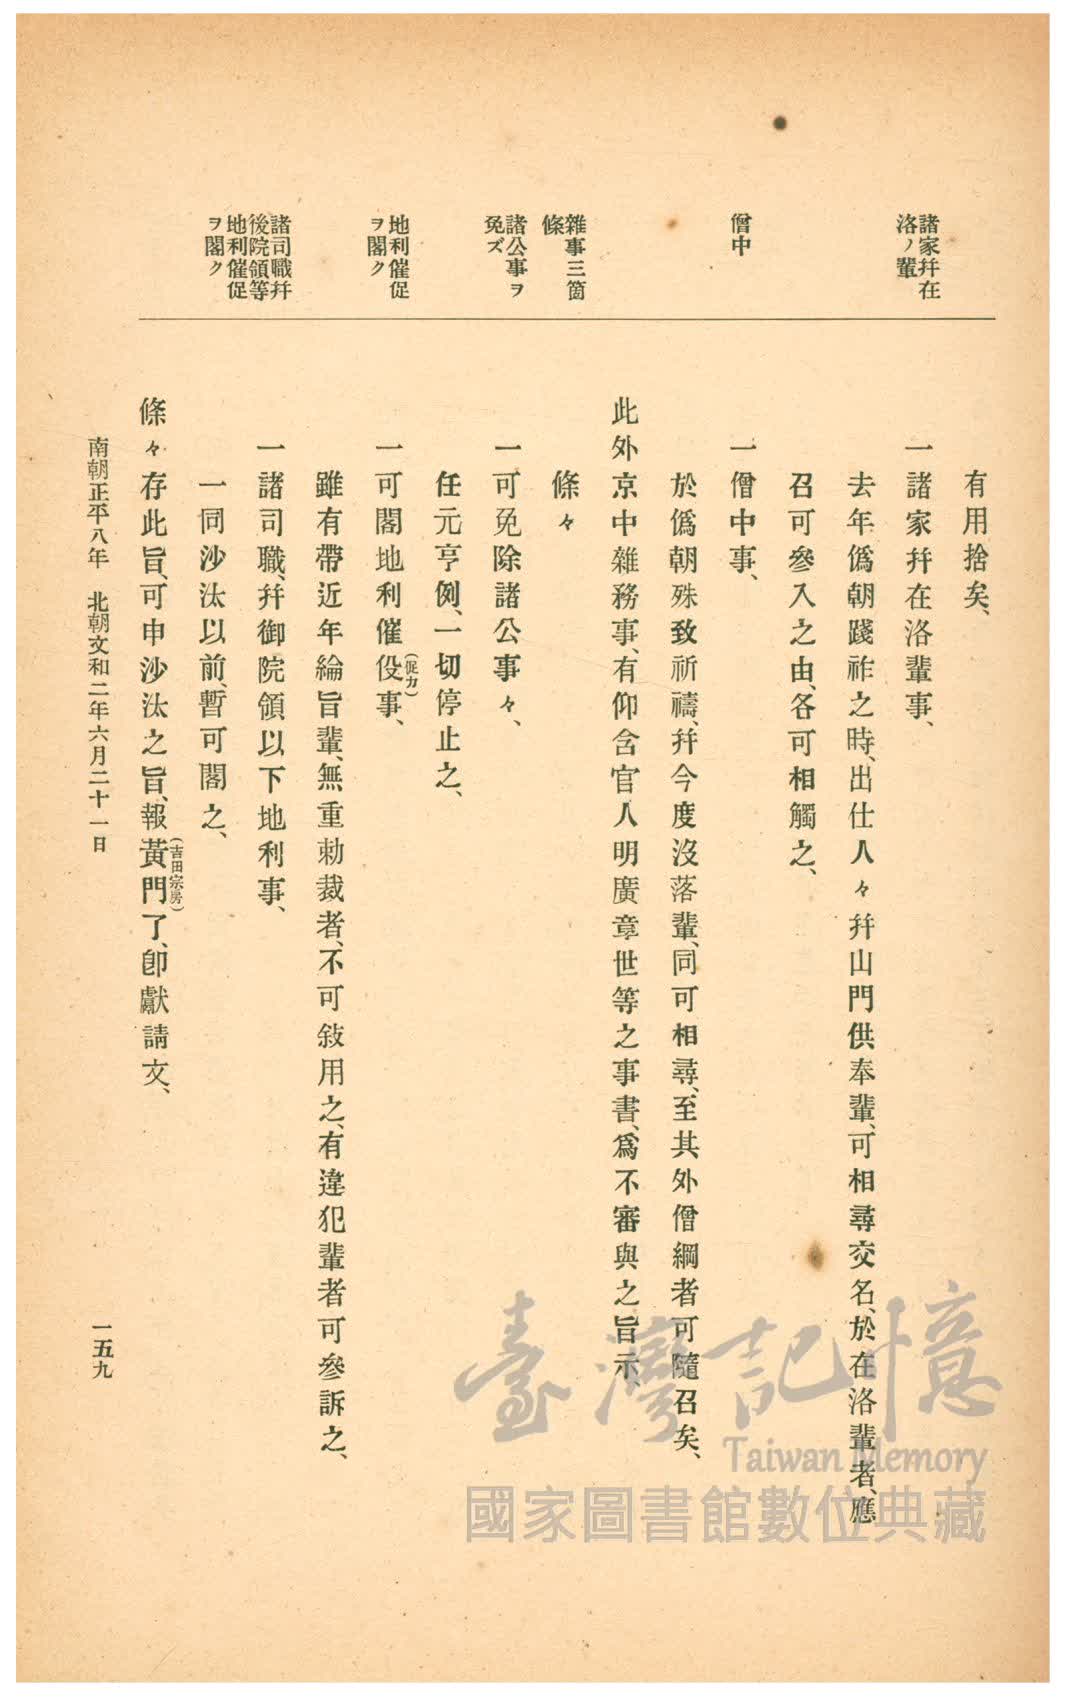 諸家幷在
洛ノ輩
僧中
雜事三箇
條
諸公事ヲ
免ズ
地利催促
ヲ閣ク
諸司職幷
後院領等
地利催促
ヲ閣ク
有用捨矣、
一諸家幷在洛輩事、
去年僞朝踐祚之時、出仕人々幷山門供奉輩、可相尋交名、於在洛輩者、應
召可參入之由、各可相觸之、
一僧中事、
於僞朝殊致祈禱、幷今度沒落輩、同可相尋、至其外僧綱者可隨召矣、
此外京中雜務事、有仰含官人明廣章世等之事書、爲不審與之旨示、
條々
一可免除諸公事々、
任元亨例、一切停止之、
一可閣地利催伇(促カ)事、
雖有帶近年綸旨輩、無重勅裁者、不可敍用之、有違犯輩者可參訴之、
一諸司職、幷御院領以下地利事、
一同沙汰以前、暫可閣之、
條々存此旨、可申沙汰之旨、報黃門(吉田宗房)了、卽獻請文、
南朝正平八年 北朝文和二年六月二十一日
一五九
臺灣記憶
Taiwan Memory
國家圖書館數位典藏